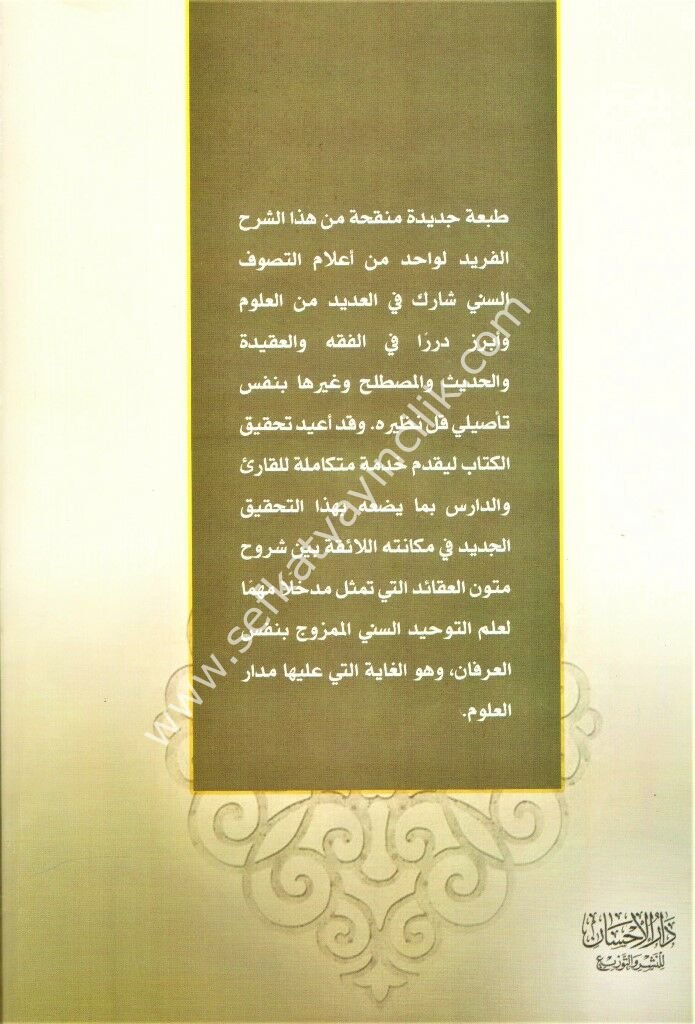 طبعة جديدة منقحة من هذا الشرح
الفريد لواحد من أعلام التصوف
السني شارك في العديد من العلوم
وأبرز دررًا في الفقه والعقيدة
والحديث والمصطلح وغيرها بنفس
تأصيلي قل نظيره. وقد أعيد تحقيق
الكتاب ليقدم خدمة متكاملة للقارئ
والدارس بما يضعه بهذا التحقيق
الجديد في مكانته اللائقة بين شروح
متون العقائد التي تمثل مدخلًا مهمًا
لعلم التوحيد السني الممزوج بنفس
العرفان، وهو الغاية التي عليها مدار
العلوم.
www.sefkatyayincilik.com
دار الإحسان
للنشر والتوزيع